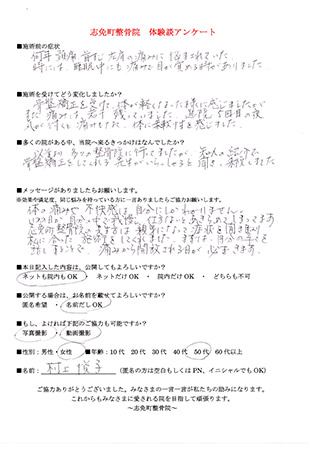 志免町整骨院　体験談アンケート
■施術前の症状
何年も 頭痛 背中 左肩の痛みに 悩まされていた
時には、睡眠中にも 痛みで 目が覚める時がありました。
■施術を受けてどう変化しましたか？
骨盤矯正を受け、体が軽くなった様に感じましたが
まだ 痛みは、若干 残っていました。
体に柔軟性を感じました。
■多くの院がある中、当院へ来るきっかけはなんでしたか？
以前は 他の整骨院に行ってましたが、知人の紹介で
骨盤矯正をしてくれる 先生がいらっしゃると 聞き、来院しました
■メッセージがありましたらお願いします。
※効果や満足度、同じ悩みを持っている方に一言がありましたらご協力お願いします。
体の痛みや 不快感は 自分にしかわかりません。
志免町整骨院の先生は 親身になって 症状を聞き取り
私に合った 施術をしてくれました。まずは、自分の辛さを
話しましょう。痛みから開放される日が 必ずきます。
■本日記入した内容は、公開してもよろしいですか？
ネットも院内もOK ・ ネットだけOK ・ 院内だけOK ・ どちらも不可
■公開する場合は、お名前を載せてよろしいですか？
匿名希望 ・ 名前だしOK
■もし、よければ下記のご協力も可能ですか？
写真撮影 ・ 動画撮影
■性別：男性・女性　■年齢：10代 20代 30代 40代 50代 60代以上
■名前： 村上 悦子 （匿名の方は空白もしくはPN、イニシャルでもOK）
ご協力ありがとうございました。みなさまの一言一言が私たちの励みになります。
これからもみなさまに愛される院を目指して頑張ります。
～志免町整骨院～